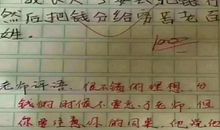 然后把钱分给穷苦老百
姓。
老师评语:很不错的理想,分
钱的时候不要忘了老师,但
你要注意你的同桌,他说他